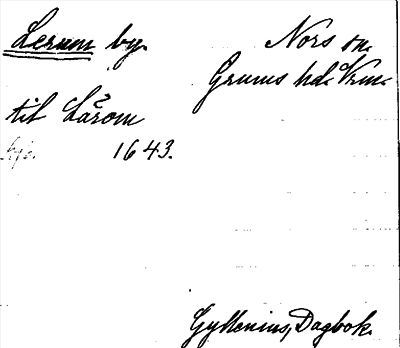 Lerum by.
Nors sn.
Grums hd. Vrml.
til Lårom
1643.
Gyllenius, Dagbok.